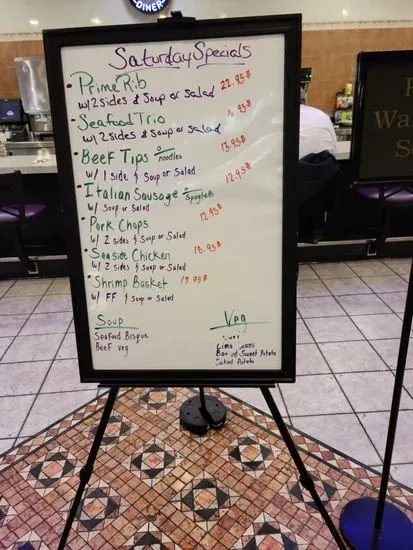 DINER
Saturday Specials
Prime Rib 22.95
w/ 2 sides & Soup or Salad
Seafood Trio 16.95
w/ 2 sides & Soup or Salad
Beef Tips noodles 13.95
w/ 1 side & Soup or Salad
Italian Sausage Spaghetti 12.95
w/ Soup or Salad
Pork Chops 12.95
w/ 2 sides & Soup or Salad
Seaside Chicken 15.95
w/ 2 sides & Soup or Salad
Shrimp Basket 13.95
w/ FF & Soup or Salad
Soup
Seafood Bisque
Beef Veg
Veg
Lima
Sweet Potato
Baked Potato
Wa